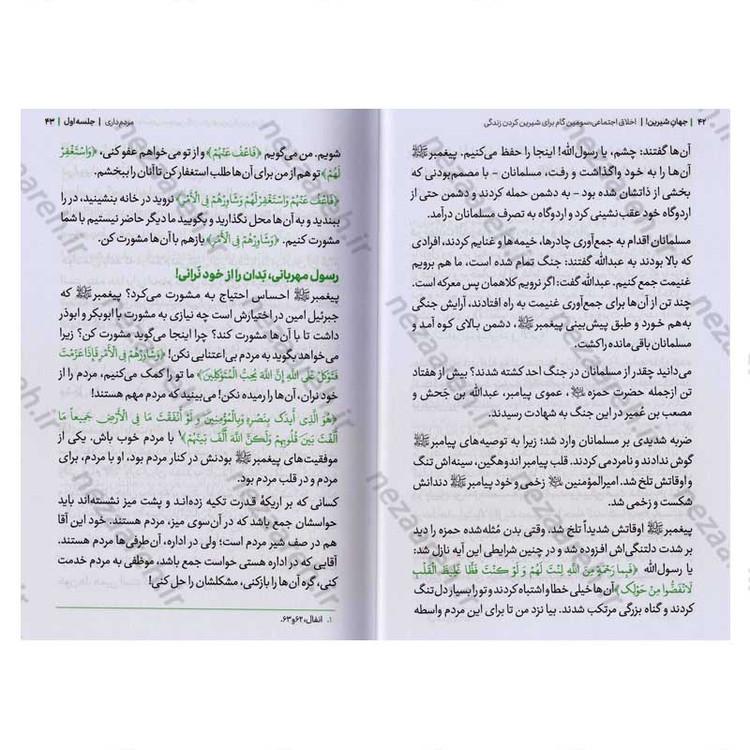 ۴۲ | جهان شیرین! | اخلاق اجتماعی، سومین گام برای شیرین کردن زندگی
آن‌ها گفتند: چشم، یا رسول‌الله! اینجا را حفظ می‌کنیم. پیغمبرﷺ
آن‌ها را به خود واگذاشت و رفت، مسلمانان – با مصمم‌بودنی که
بخشی از ذاتشان شده بود – به دشمن حمله کردند و دشمن حتی از
اردوگاه خود عقب‌نشینی کرد و اردوگاه به تصرف مسلمانان درآمد.
مسلمانان اقدام به جمع‌آوری چادرها، خیمه‌ها و غنایم کردند، افرادی
که بالا بودند به عبدالله گفتند: جنگ تمام شده است، ما هم برویم
غنیمت جمع کنیم. عبدالله گفت: اگر نرویم کلاهمان پس معرکه است.
چند تن از آن‌ها برای جمع‌آوری غنیمت به راه افتادند، آرایش جنگی
به‌هم خورد و طبق پیش‌بینی پیغمبرﷺ، دشمن بالای کوه آمد و
مسلمانان باقی‌مانده را کشت.
می‌دانید چقدر از مسلمانان در جنگ احد کشته شدند؟ بیش از هفتاد
تن ازجمله حضرت حمزه، عموی پیامبر، عبدالله بن جَحش و
مصعب بن عُمیر در این جنگ به شهادت رسیدند.
ضربه شدیدی بر مسلمانان وارد شد؛ زیرا به توصیه‌های پیامبرﷺ
گوش ندادند و نامردمی کردند. قلب پیامبر اندوهگین، سینه‌اش تنگ
و اوقاتش تلخ شد. امیرالمؤمنین زخمی و خود پیامبرﷺ دندانش
شکست و زخمی شد.
پیغمبرﷺ اوقاتش شدیداً تلخ شد. وقتی بدن مُثله‌شده حمزه را دید
بر شدت دلتنگی‌اش افزوده شد و در چنین شرایطی این آیه نازل شد:
یا رسول‌الله ﴿فَبِما رَحمَةٍ مِنَ اللَّهِ لِنتَ لَهُم وَ لَو کُنتَ فَظًّا غَلیظَ القَلبِ
لَانفَضّوا مِن حَولِکَ﴾ آن‌ها خیلی خطا و اشتباه کردند و تو را بسیار دل‌تنگ
کردند و گناه بزرگی مرتکب شدند. بیا نزد من تا برای این مردم واسطه
مردم‌داری | جلسه اول | ۴۳
شویم. من می‌گویم ﴿فَاعْفُ عَنْهُمْ﴾ و از تو می‌خواهم عفو کنی، ﴿وَاسْتَغْفِرْ
لَهُمْ﴾ تو هم از من برای آن‌ها طلب استغفار کن تا آنان را ببخشم.
﴿فَاعْفُ عَنْهُمْ وَاسْتَغْفِرْ لَهُمْ وَشَاوِرْهُمْ فِی الْأَمْرِ﴾ نروید در خانه بنشینید، در را
ببندید و به آن‌ها محل نگذارید و بگویید ما دیگر حاضر نیستیم با شما
مشورت کنیم. ﴿وَشَاوِرْهُمْ فِی الْأَمْرِ﴾ بازهم با آن‌ها مشورت کن.
رسول مهربانی، بَدان را از خود نَرانی!
پیغمبرﷺ احساس احتیاج به مشورت می‌کرد؟ پیغمبرﷺ که
جبرئیل امین در اختیارش است چه نیازی به مشورت با ابوبکر و ابوذر
داشت تا با آن‌ها مشورت کند؟ چرا اینجا می‌گوید مشورت کن؟ زیرا
می‌خواهد بگوید به مردم بی‌اعتنایی نکن! ﴿وَشَاوِرْهُمْ فِی الْأَمْرِ فَإِذَا عَزَمْتَ
فَتَوَکَّلْ عَلَى اللَّهِ إِنَّ اللَّهَ یُحِبُّ الْمُتَوَکِّلِینَ﴾ ما تو را کمک می‌کنیم، مردم را از
خود نران، آن‌ها را رمیده نکن! می‌بینید که مردم مهم هستند!
﴿هُوَ الَّذِی أَیَّدَکَ بِنَصْرِهِ وَبِالْمُؤْمِنِینَ وَ لَوْ أَنْفَقْتَ مَا فِی الْأَرْضِ جَمِیعاً مَا
أَلَّفْتَ بَیْنَ قُلُوبِهِمْ وَلَکِنَّ اللَّهَ أَلَّفَ بَیْنَهُمْ﴾۱ با مردم خوب باش. یکی از
موفقیت‌های پیغمبرﷺ بودنش در کنار مردم بود، او با مردم، برای
مردم و در قلب مردم بود.
کسانی که بر اریکهٔ قدرت تکیه زده‌اند و پشت میز نشسته‌اند باید
حواسشان جمع باشد که در آن‌سوی میز، مردم هستند. خود این آقا
هم در صف شیر مردم است؛ ولی در اداره، آن‌طرفی‌ها مردم هستند.
آقایی که در اداره هستی حواست جمع باشد، موظفی به مردم خدمت
کنی، گره آن‌ها را بازکنی، مشکلشان را حل کنی!
۱. انفال، ۶۲ و ۶۳.
nezaareh.ir